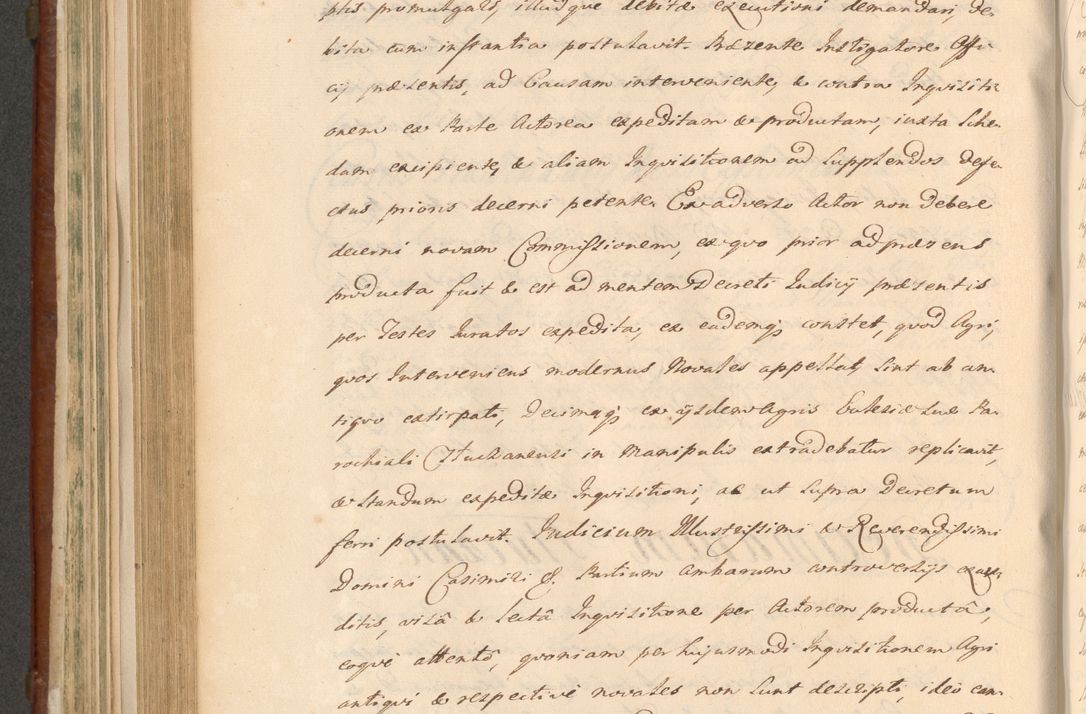 ptis promulgari, illudque debitæ executioni demandari, de,
bita cum instantia postulavit. Præzente Instigatore Offi,
cij præsentis, ad Causam interveniente, & contra Inqvisiti,
onem ex Parte Actorea expeditam & productam, iuxta Sche,
dam excipiente, & aliam Inqvisitionem ad Supplendos defe,
ctus prioris decerni petente. Ex adverso Actor non debere
decerni novam Commissionem, ex quo prior ad præzens
producta fuit & est ad mentem Decreti Iudicij præzentis
per Testes Iuratos expedita, ex eademq; constet, quod Agri,
quos Interveniens modernus Novales appellat, Sint ab an,
tiquo extirpati, Decimaq; ex ijsdem Agris Ecclesiæ suæ Pa,
rochiali in Manipulis extradebatur replicavit,
& Standum expeditæ Inqvisitioni, ac ut Supra Decretum
ferri postulavit. Iudicium Illustrissimi & Reverendissimi
Domini Casimiri &. Partium ambarum controversijs exau,
ditis, visâ & lectâ Inqvisitione per Actorem productâ,
eoqve attentô, qvoniam per hujusmodi Inqvisitionem Agri
antiqvi & respectivè novales non Sunt descripti, ideò eam,